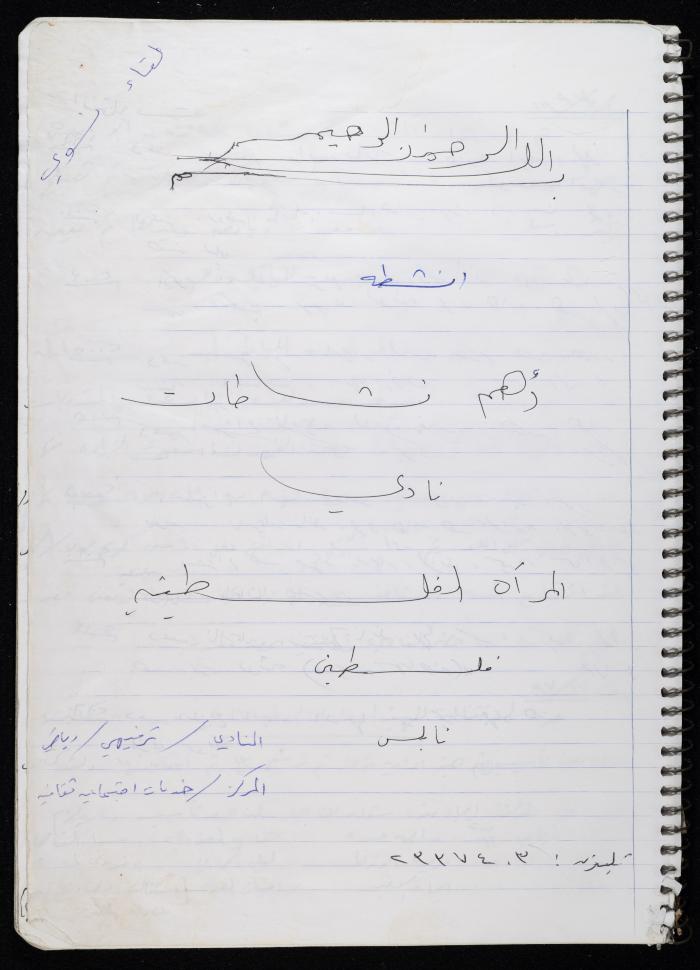 لقاء نسوي
بسم الله الرحمن الرحيم
انشطه
أهم نشاطات
نادي
المرأة الفلسطينيه
فلسطين
نابلس
النادي / ترفيهي / رياضي
المركز / خدمات اجتماعيه ثقافيه
تليفون : ٢٣٣٧٤٠٣